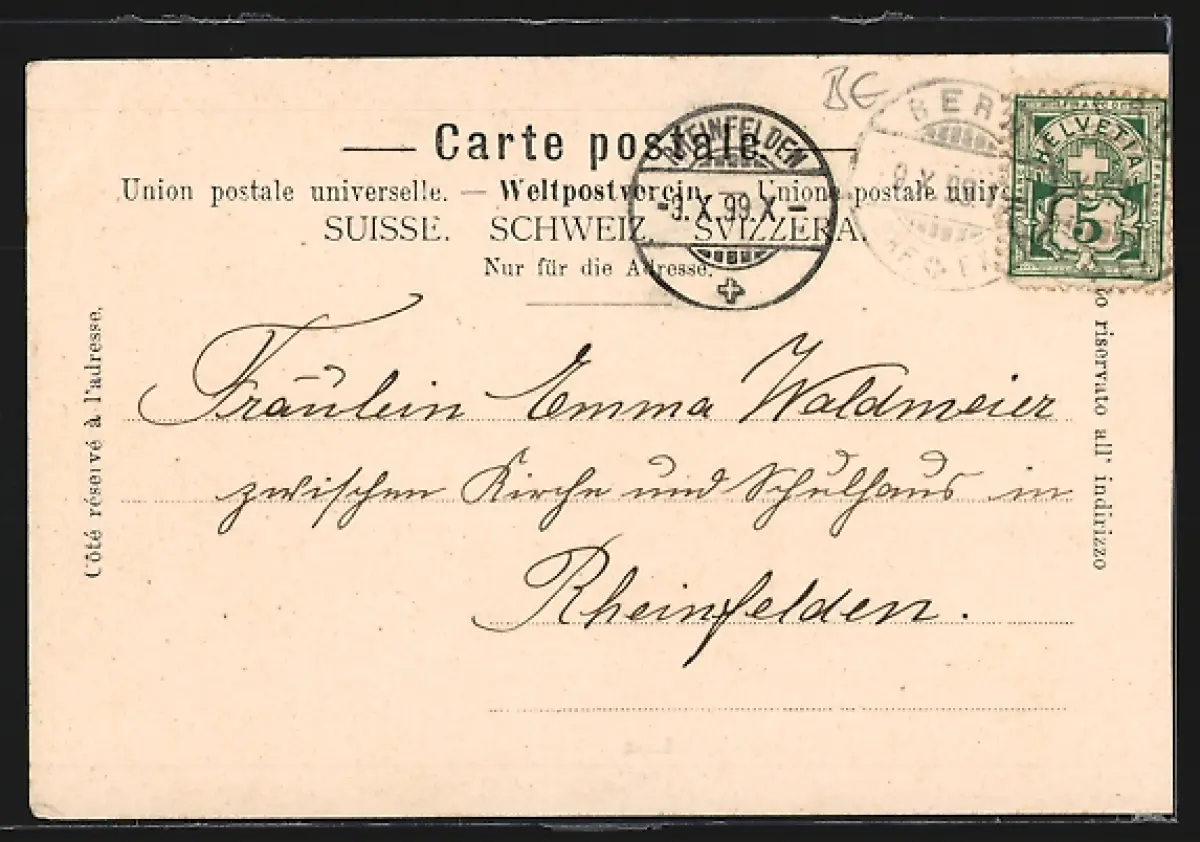 BE
Carte postale.
Union postale universelle. — Weltpostverein — Unione postale univers
SUISSE. SCHWEIZ. SVIZZERA.
Nur für die Adresse.
RHEINFELDEN
-9.X.99.X-
BER
FRANCO
HELVETIA
5
Côté réservé à l'adresse.
riservato all' indirizzo
Fräulein Emma Waldmeier
zwischen Kirche und Schulhaus in
Rheinfelden.